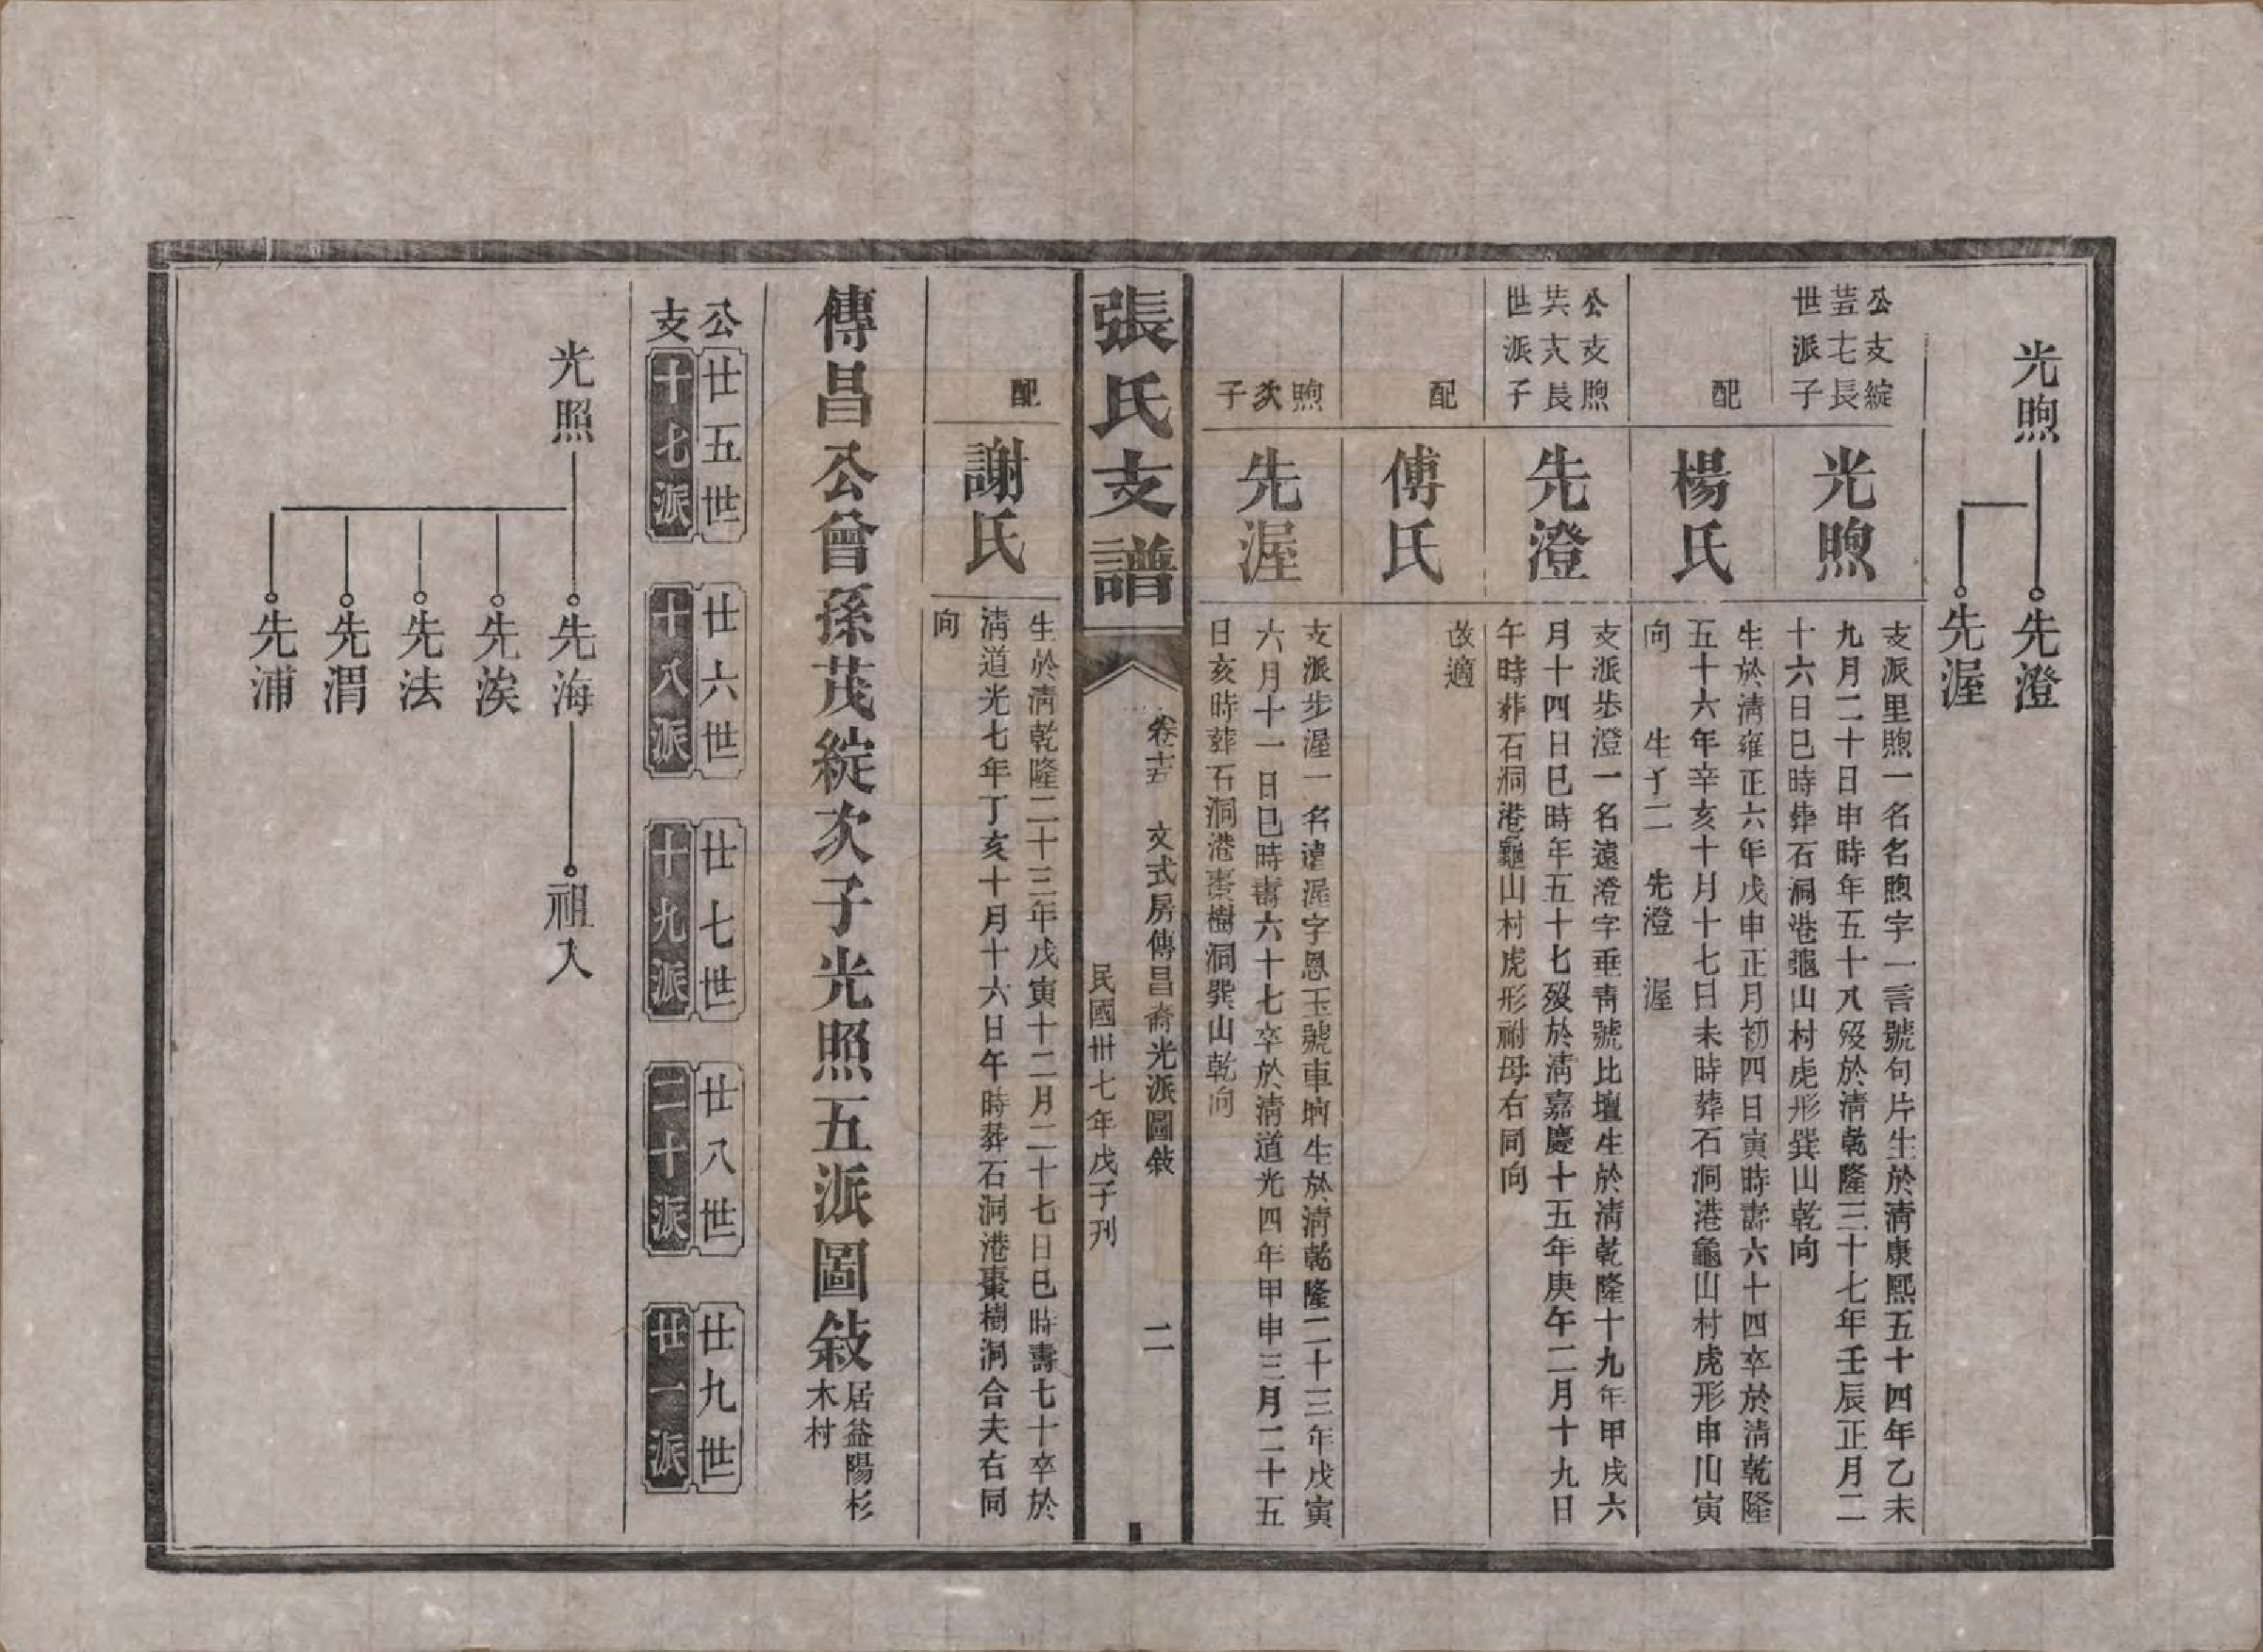 光煦
先澄
先渥
公支綻
廿五十七長
世派子
光煦
支派里煦一名名煦字一言號句片生於清康熙五十四年乙未
九月二十日申時年五十八歿於清乾隆三十七年壬辰正月二
十六日巳時葬石洞港龜山村虎形巽山乾向
配
楊氏
生於清雍正六年戊申正月初四日寅時壽六十四卒於清乾隆
五十六年辛亥十月十七日未時葬石洞港龜山村虎形申山寅
向 生子二 先澄 渥
公支煦
廿六十八長
世派子
先澄
支派步澄一名遠澄字垂青號比壇生於清乾隆十九年甲戌六
月十四日巳時年五十七歿於清嘉慶十五年庚午二月十九日
午時葬石洞港龜山村虎形祔母右同向
配
傅氏
改適
煦
次
子
先渥
支派步渥一名遠渥字恩玉號車坰生於清乾隆二十三年戊寅
六月十一日巳時壽六十七卒於清道光四年甲申三月二十五
日亥時葬石洞港棗樹洞巽山乾向
張氏支譜
卷十五 文式房傳昌裔光派圖敍 二
民國卅七年戊子刊
配
謝氏
生於清乾隆二十三年戊寅十二月二十七日巳時壽七十卒於
清道光七年丁亥十月十六日午時葬石洞港棗樹洞合夫右同
向
傳昌公曾孫茂綻次子光照五派圖敍
居益陽杉
木村
公 廿五世 廿六世 廿七世 廿八世 廿九世
支 十七派 十八派 十九派 二十派 廿一派
光照
先海
祖人
先涘
先法
先渭
先浦